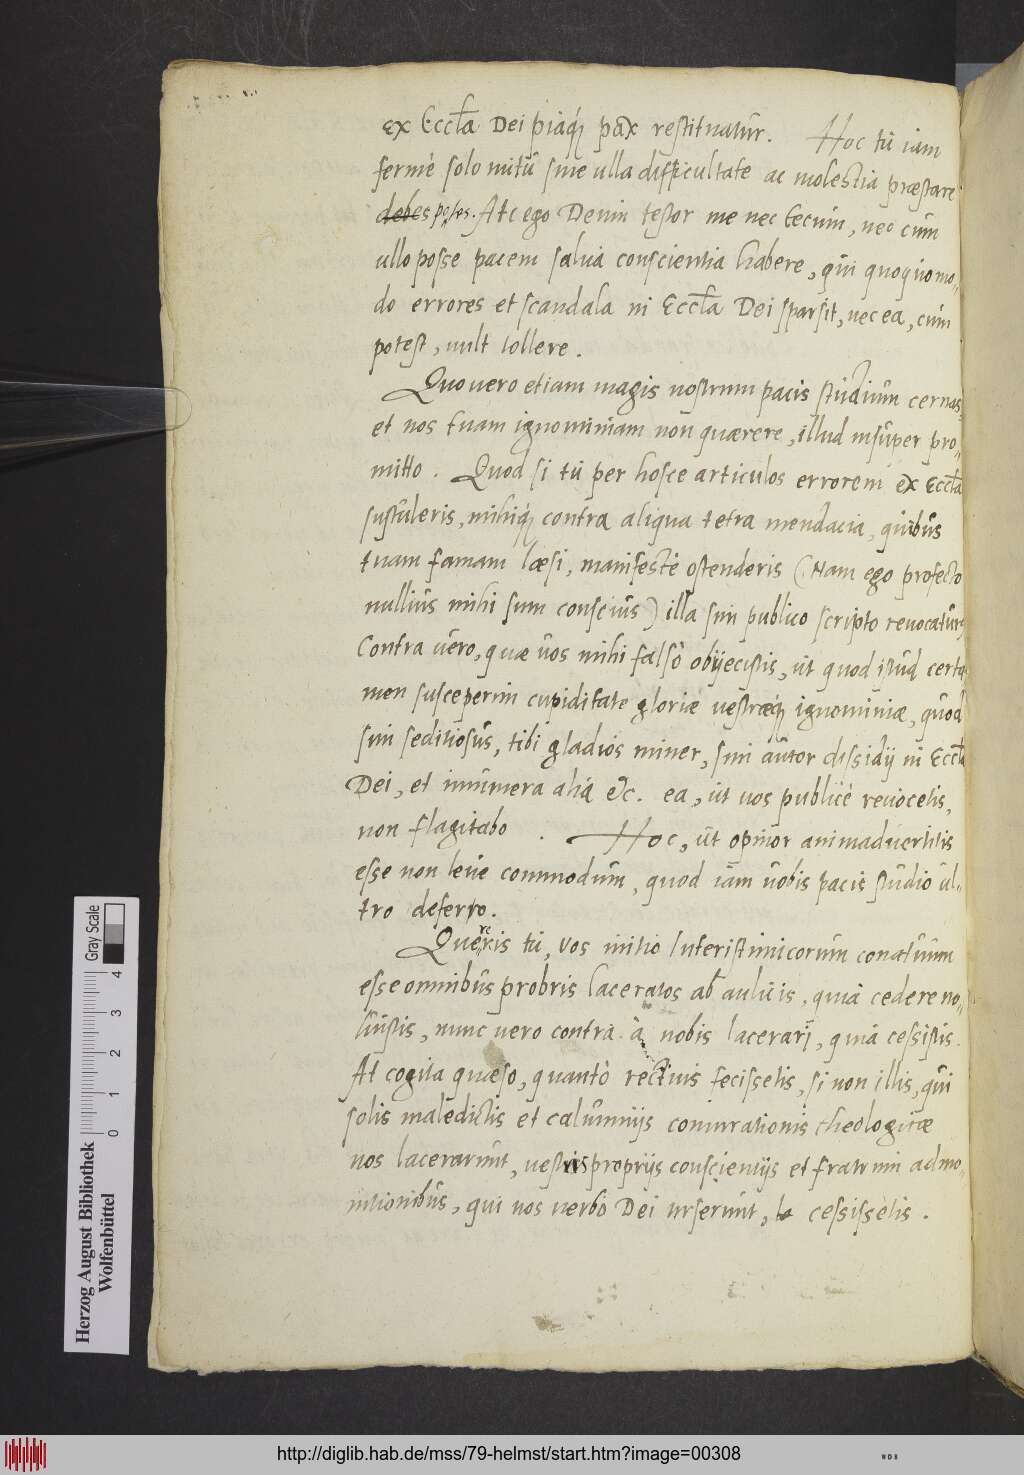 ex Eccła Dei piaq́ pax restituatur. Hoc tu iam
fermè solo mitũ sine ulla difficultate ac molestia præstare
debes potes. At ego Deum testor me nec tecum, nec cum
ullo posse pacem salua conscientia habere, qui quoquomo„
do errores et scandala in Eccła Dei sparsit, nec ea, cum
potest, uult tollere.
Quo uero etiam magis nostrum pacis studium cernas,
et nos tuam ignominiam non quærere, illud insuper pro„
mitto. Quod si tu per hosce articulos errorem ex Eccła
sustuleris, mihiq́ contra aliqua tetra mendacia, quibus
tuam famam læsi, manifestè ostenderis (Nam ego profecto
nullius mihi sum conscius) illa sim publico scripto reuocaturus
Contra uero, quæ uos mihi falsò obijecistis, ut quod istud certa„
men susceperim cupiditate gloriæ uestræq́ ignominiæ, quod
sim seditiosus, tibi gladios miner, sim autor dissidij in Eccła
Dei, et innumera alia &c. ea, ut uos publicè reuocetis,
non flagitabo. Hoc, ut opinor animaduertitis
esse non leue commodum, quod iam uobis pacis studio ul„
tro deferro.
Quereris tu, Vos initio Interistimicorum conatuum
esse omnibus probris laceratos ab aulicis, quia cedere no„
luistis, nunc uero contra à nobis lacerari, quia cessistis.
At cogita quæso, quantò rectius fecissetis, si non illis, qui
solis maledictis et calumnijs coniurationis theologicæ
uos lacerarunt, uestris proprijs conscientijs et fratrum admo„
nitionibus, qui uos uerbo Dei urserunt, cessissetis.
Herzog August Bibliothek
Wolfenbüttel
0 1 2 3 4
Gray Scale
http://diglib.hab.de/mss/79-helmst/start.htm?image=00308
WDB